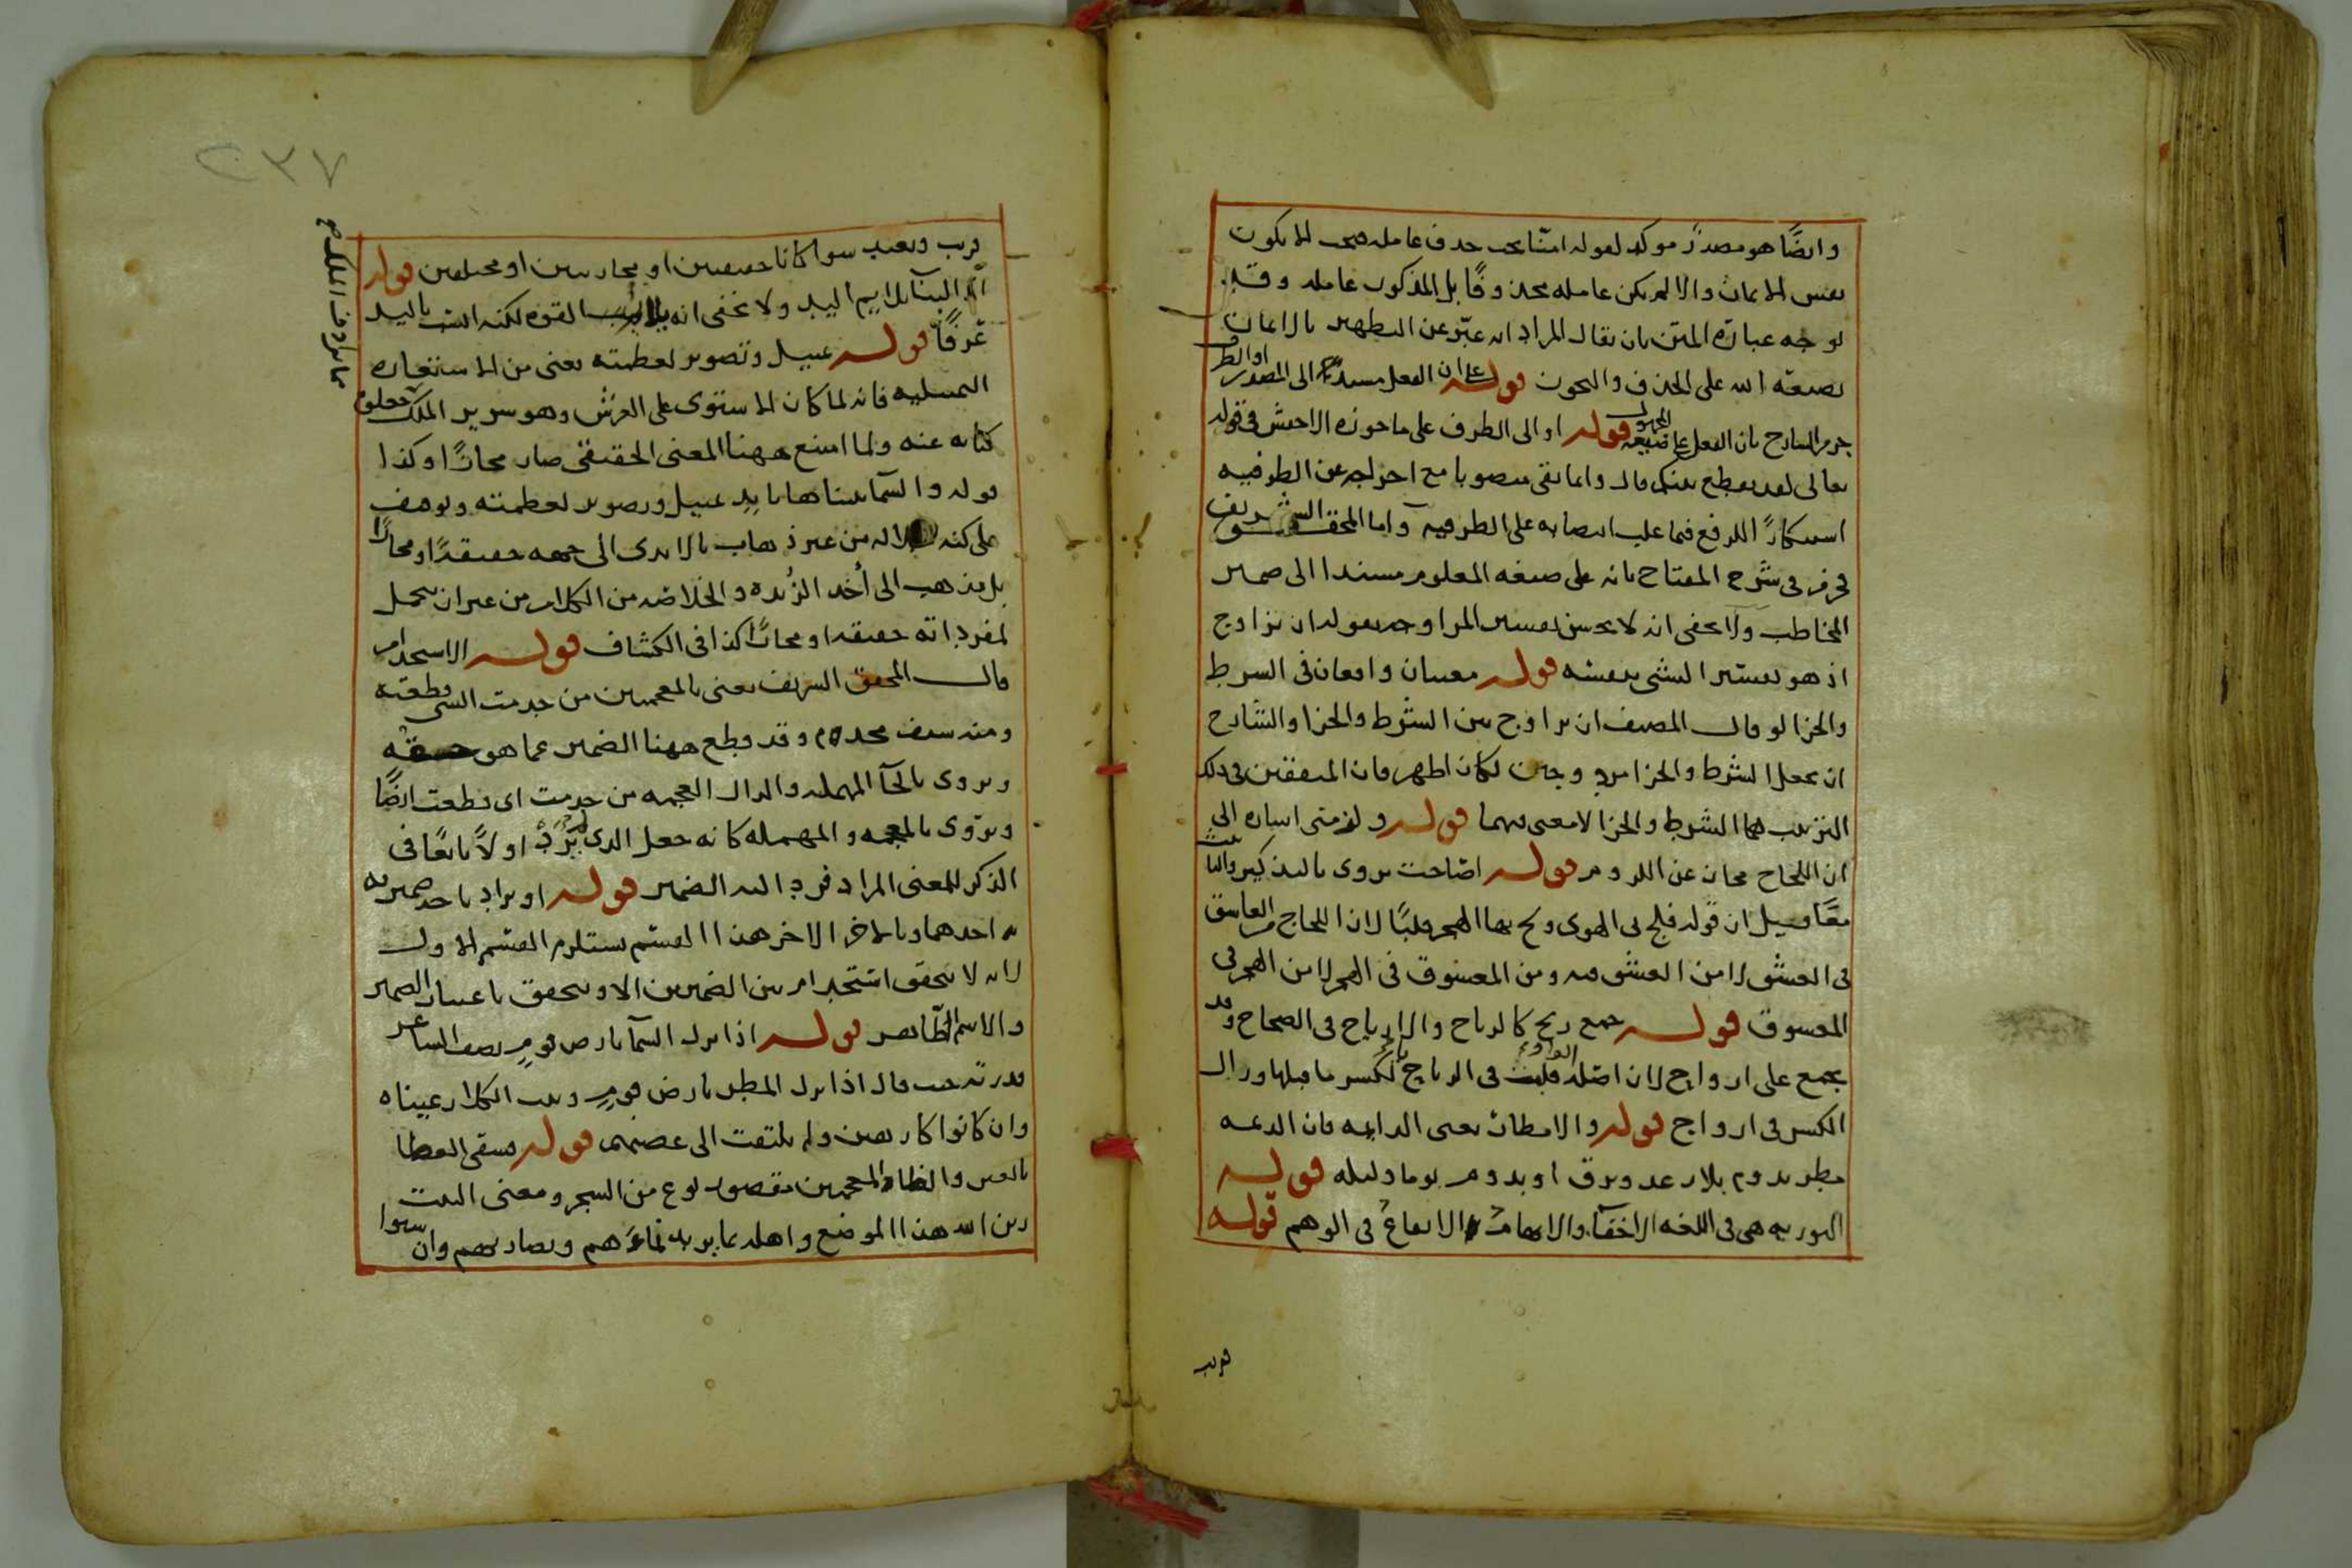 وايضًا هو مصدر موكد لقوله امنا يجب حذف عامله فيجب ان لا يكون
نفس الايمان والا لم يكن عامله محذوفًا بل المذكور عامله
لوجه عبارة المتن بان يقال المراد انه عبّر عن التطهير بالايمان
بصبغة الله على الحذف والتجوز قوله على ان الفعل مسند الى المصدر او الظرف
جزم الشارح بان الفعل على صيغة المجهول قوله او الى الظرف على ما جوزه الاخفش في قوله
تعالى لقد تقطع بينكم قال وانما بقي منصوبا مع اخراجه عن الظرفيه
استنكارًا للرفع فيما غلب انتصابه على الظرفيه واما المحقق الشريف
في شرح المفتاح بانه على صيغه المعلوم مسندا الى ضمير
المخاطب ولا يخفى انه لا يحسن تفسير المزاوجه بقوله ان تزاوج
اذ هو تفسير الشي بنفسه قوله معنيان واقعان في الشرط
والجزا لو قال المصنف ان يزاوج بين الشرط والجزا والشارح
ان يجعل الشرط والجزا مزدوجين لكان اظهر فان المتفقين في ذلك
الترتيب هما الشرط والجزا لا معنى فيهما قوله ولزمني اشاره الى
ان اللجاج مجاز عن اللزوم قوله اصاخت يروى بالتذكير والتانيث
معًا قيل ان قوله فلج بي الهوى ولج بها الهجر قلبًا لان اللجاج من العاشق
في العشق لا من العشق فيه ومن المعشوق في الهجر لا من الهجر في
المعشوق قوله جمع ريح كالرياح والارياح في الصحاح وقد
يجمع على ارواح لان اصله الواو قلبت في الرياح يا لكسر ما قبلها وزال
الكسر في ارواح قوله والامطار يعني الدايمه فان الديمه
مطر يدوم بلا رعد وبرق او يدوم يوما وليله قوله
التوريه هي في اللغه الاخفا والايهام الايقاع في الوهم قوله
قريب
٢٣٧
قريب وبعيد سوا كانا حقيقيين او مجازيين او مختلفين قوله
البنا يلايم اليد ولا يخفى انه يلايم القوه لكنه انسب باليد
عرفًا قوله تمثيل وتصوير لعظمته يعني من الاستعاره
التمثيليه فانه لما كان الاستوى على العرش وهو سرير الملك
مما يرادف الملك جعلوه
كنايه عنه ولما امتنع ههنا المعنى الحقيقي صار مجازًا وكذا
قوله والسما بنيناها بايد تمثيل وتصوير لعظمته وتوقيف
على كنه جلاله من غير ذهاب بالايدي الى جهه حقيقه او مجازًا
بل يذهب الى اخذ الزبدة والخلاصه من الكلام من غير ان يتحمل
لمفرداته حقيقه او مجازًا كذا في الكشاف قوله الاستخدام
قال المحقق الشريف يعني بالمعجمتين من خذمت الشي قطعته
ومنه سيف مخذوم وقد قطع ههنا الضمير عما هو حقه
ويروى بالحا المهمله والذال المعجمه من حذمت اى قطعت ايضًا
ويروى بالمعجمه والمهمله كانه جعل الذي لم يُرد اولاً تابعًا في
الذكر للمعنى المراد فرد اليه الضمير قوله او يراد باحد ضميريه
احدهما وبالاخر الاخر هذا القسم يستلزم القسم الاول
لانه لا يتحقق استخدام بين الضميرين الا ويتحقق باعتبار الضمير
والاسم الظاهر قوله اذا نزل السما بارض قوم يصف الشاعر
قدرته حيث قال اذا نزل المطر بارض قوم ونبت الكلا رعيناه
وان كانوا كارهين ولم يلتفت الى غضبهم قوله فسقى الغضا
بالغين والضاد المعجمتين مقصور نوع من الشجر ومعنى البيت
هذا الموضع واهله